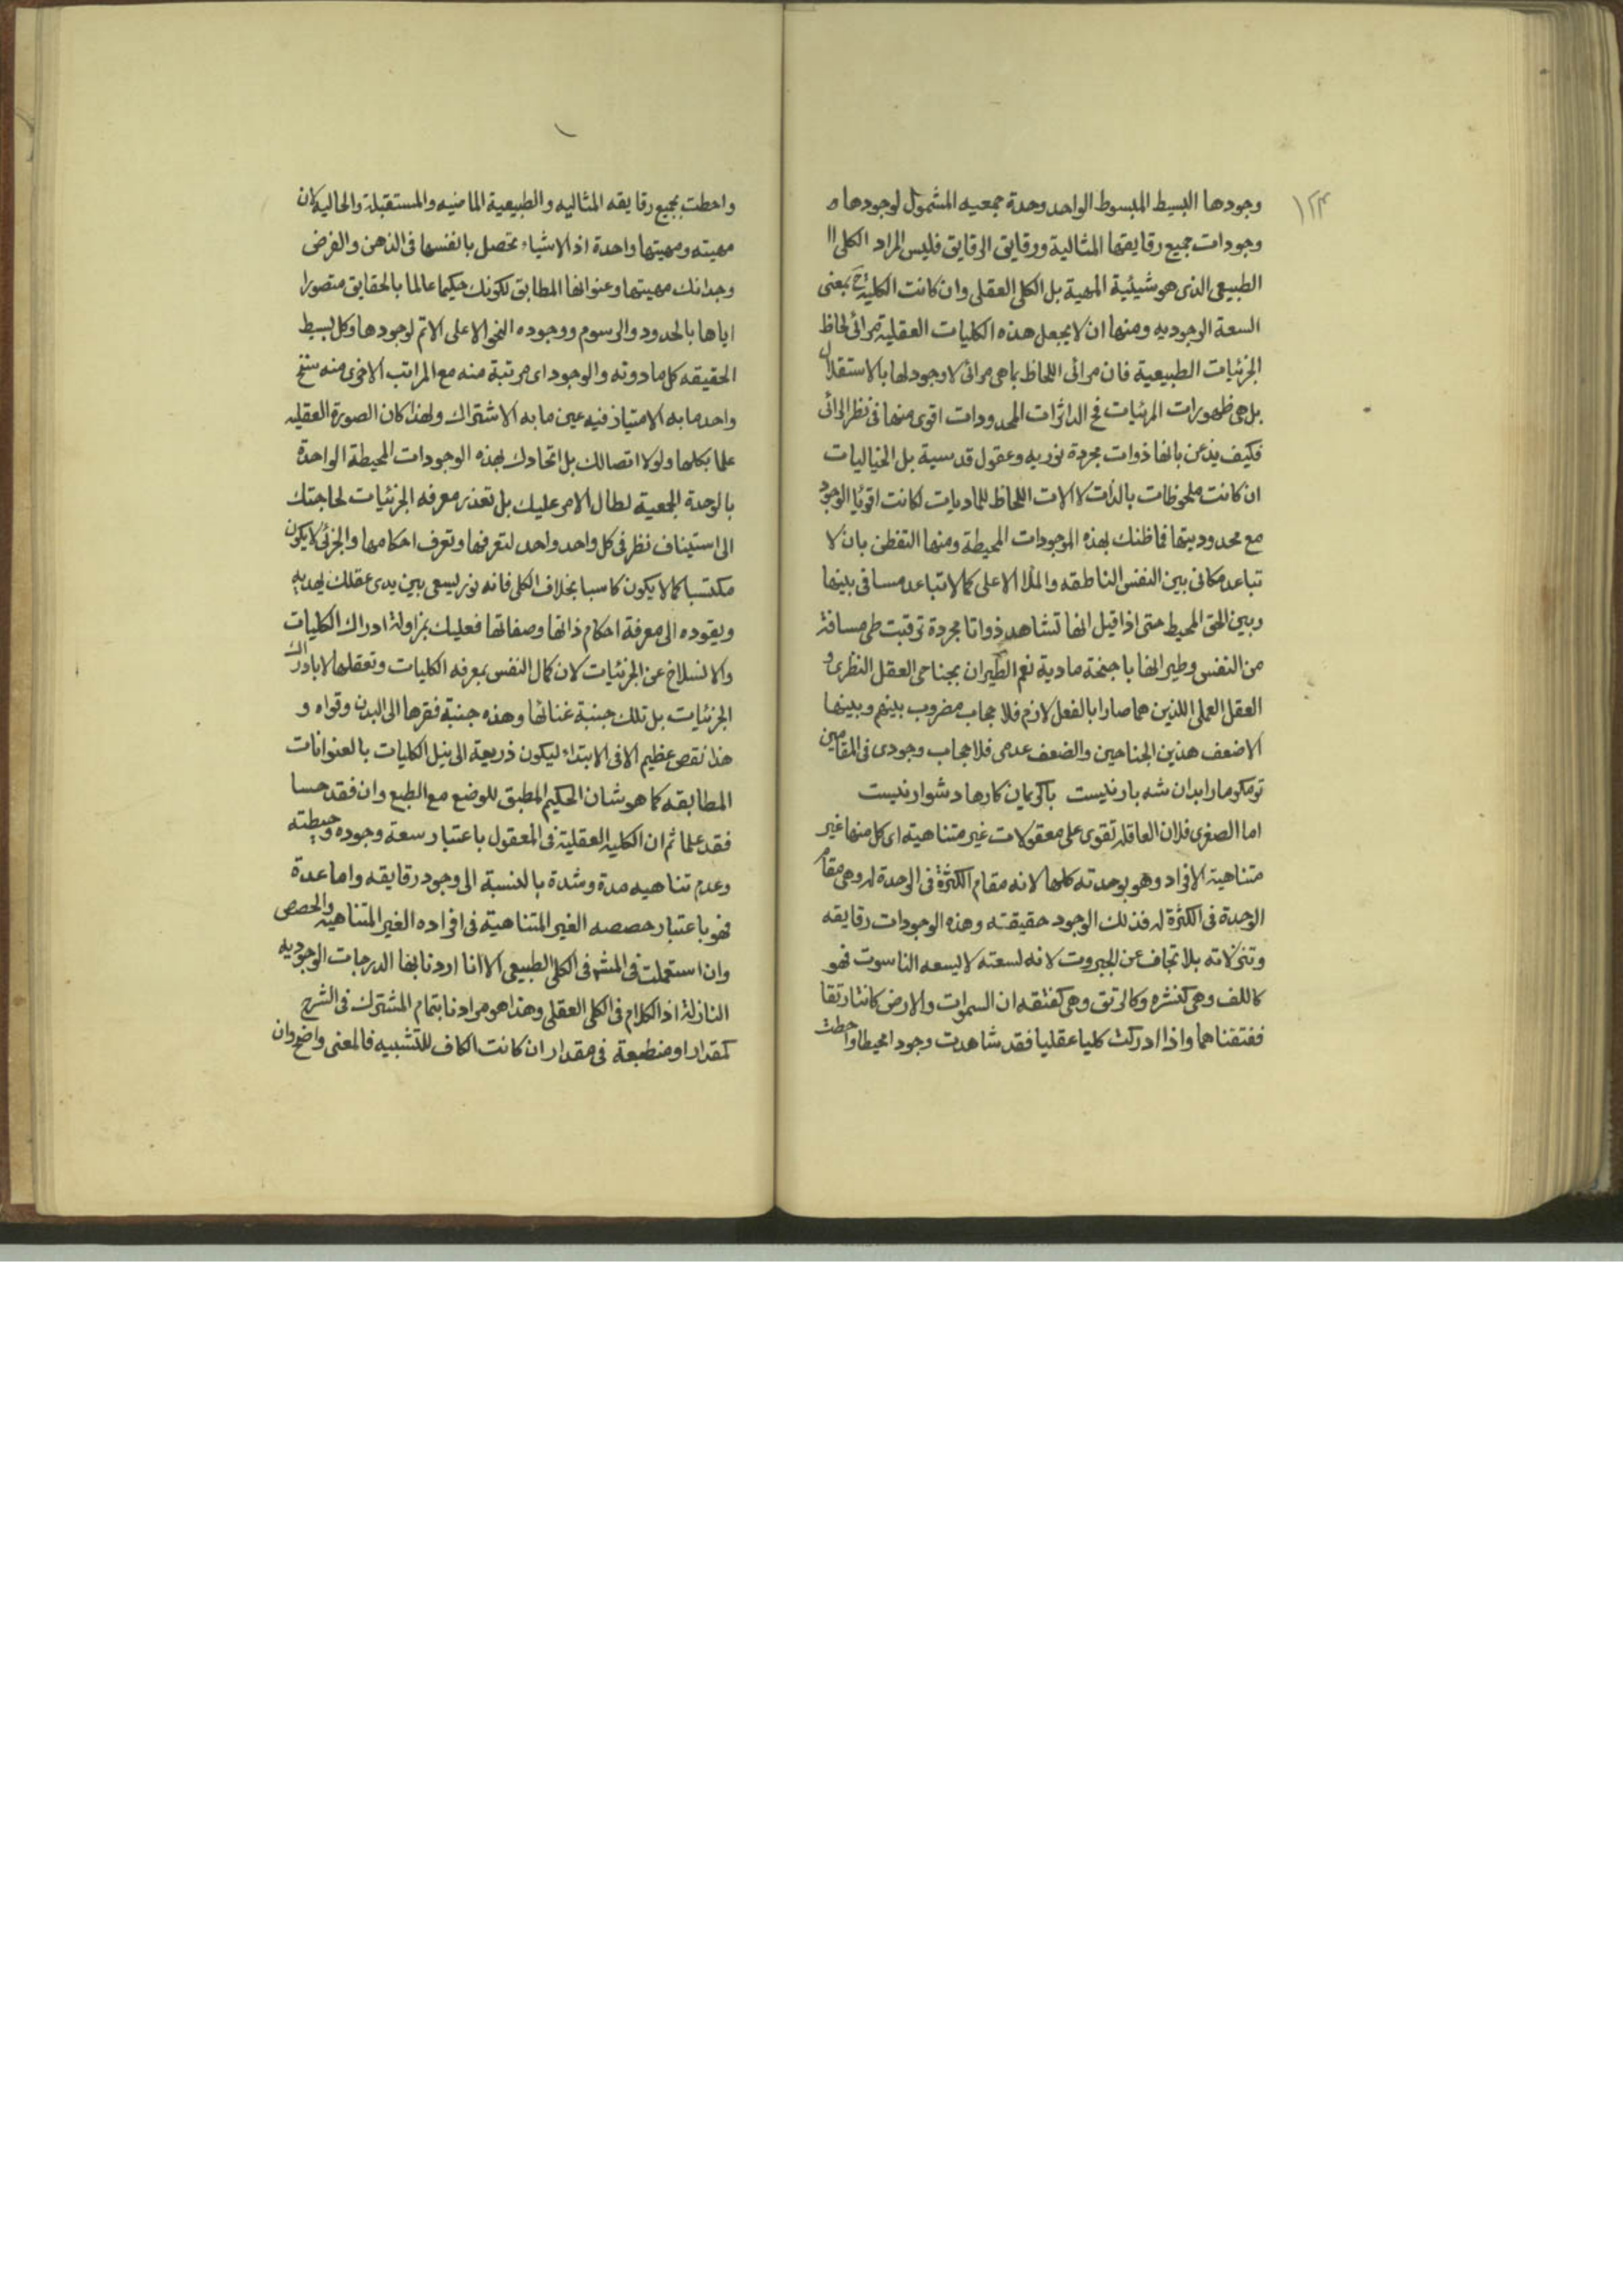 ١٢٣
وجودها البسيط المبسوط الواحد وحدة جمعيه المشمول لوجودها و
وجودات جميع رقايقها المثالية ورقايق الرقايق فليس المراد الكلى
الطبيعى الذى هو شيئية المهية بل الكلى العقلى وان كانت الكلية ح بمعنى
السعة الوجوديه ومنها ان لا يجعل هذه الكليات العقلية مرائى لحاظ
الجزئيات الطبيعية فان مرائى اللحاظ بما هى مرائى لا وجود لها بالاستقلال
بل هى ظهورات المرئيات فح الداثرات المحدودات اقوى منها فى نظر الرائى
فكيف يذعن بانها ذوات مجردة نوريه وعقول قدسية بل الخياليات
ان كانت ملحوظات بالذات لا الات اللحاظ للماديات لكانت اقوياء الوجود
مع محدوديتها فما ظنك بهذه الموجودات المحيطة ومنها التفطن بان لا
تباعد مكانى بين النفس الناطقه والملاء الاعلى كما لا تباعد مسافى بينها
وبين الحق المحيط حتى اذا قيل انها تشاهد ذواتا مجردة توقبت طى مسافة
من النفس وطيرانها باجنحة مادية نعم الطيران بجناحى العقل النظرى و
العقل العملى اللذين هما صارا بالفعل لازم فلا حجاب مضروب بينهم وبينها
الا ضعف هذين الجناحين والضعف عدمى فلا حجاب وجودى فى المقامين
تو مگو ما را بدان شه بار نيست با كريمان كارها دشوار نيست
اما الصغرى فلان العاقله تقوى على معقولات غير متناهية اى كل منها غير
متناهية الافراد وهو بوحدته كلها لانه مقام الكثرة فى الوحدة له وهى مقام
الوحدة فى الكثرة له فذلك الوجود حقيقته وهذه الوجودات رقايقه
وتنزلاته بلا تجاف عن الجبروت لانه لسعته لا يسعه الناسوت فهو
كاللف وهى كنشره وكالرتق وهى كفتقه ان السموات والارض كانتا رتقا
ففتقناهما واذا ادركت كليا عقليا فقد شاهدت وجودا محيطا واحطت
واحطت بجميع رقايقه المثاليه والطبيعية الماضيه والمستقبلة والحاليه لان
مهيته ومهيتها واحدة اذ الاشياء تحصل بانفسها فى الذهن والفرض
وجدانك مهيتها وعنوانها المطابق لكونك حكيما عالما بالحقايق متصورا
اياها بالحدود والرسوم ووجوده النحو الاعلى الاتم لوجودها وكل بسيط
الحقيقه كل ما دونه والوجود اى مرتبة منه مع المراتب الاخرى منه سنخ
واحد ما به الامتياز فيه عين ما به الاشتراك ولهذا كان الصورة العقليه
علما بكلها ولولا اتصالك بل اتحادك بهذه الوجودات المحيطة الواحدة
بالوحدة الجمعية لطال الامر عليك بل تعذر معرفه الجزئيات لحاجتك
الى استيناف نظر فى كل واحد واحد لتعرفها وتعرف احكامها والجزئى لا يكون
مكتسبا كما لا يكون كاسبا بخلاف الكلى فانه نور يسعى بين يدى عقلك يهديه
ويقوده الى معرفة احكام ذاتها وصفاتها فعليك بمزاولة ادراك الكليات
والانسلاخ عن الجزئيات لان كمال النفس بمعرفه الكليات وتعقلها لا بادراك
الجزئيات بل تلك جنبة غنائها وهذه جنبة فقرها الى البدن وقواه و
هذا نقص عظيم الا فى الابتداء ليكون ذريعة الى نيل الكليات بالعنوانات
المطابقه كما هو شان الحكيم المطبق للوضع مع الطبع وان فقد حسا
فقد علما ثم ان الكليه العقلية فى المعقول باعتبار سعة وجوده وحيطته
وعدم تناهيه مدة وشدة بالنسبة الى وجود رقايقه واما عدة
فهو باعتبار حصصه الغير المتناهية فى افراده الغير المتناهيه والحصص
وان استعملت فى المشهر فى الكلى الطبيعى الا انا اردنا بها الدرجات الوجوديه
النازلة اذ الكلام فى الكلى العقلى وهذا هو مرادنا بتمام المشترك فى الشرح
كمقدار او منطبعة فى مقدار ان كانت الكاف للتشبيه فالمعنى واضح وان